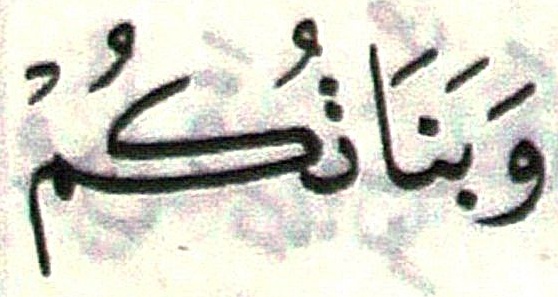 وَبَنَاتُكُمْ